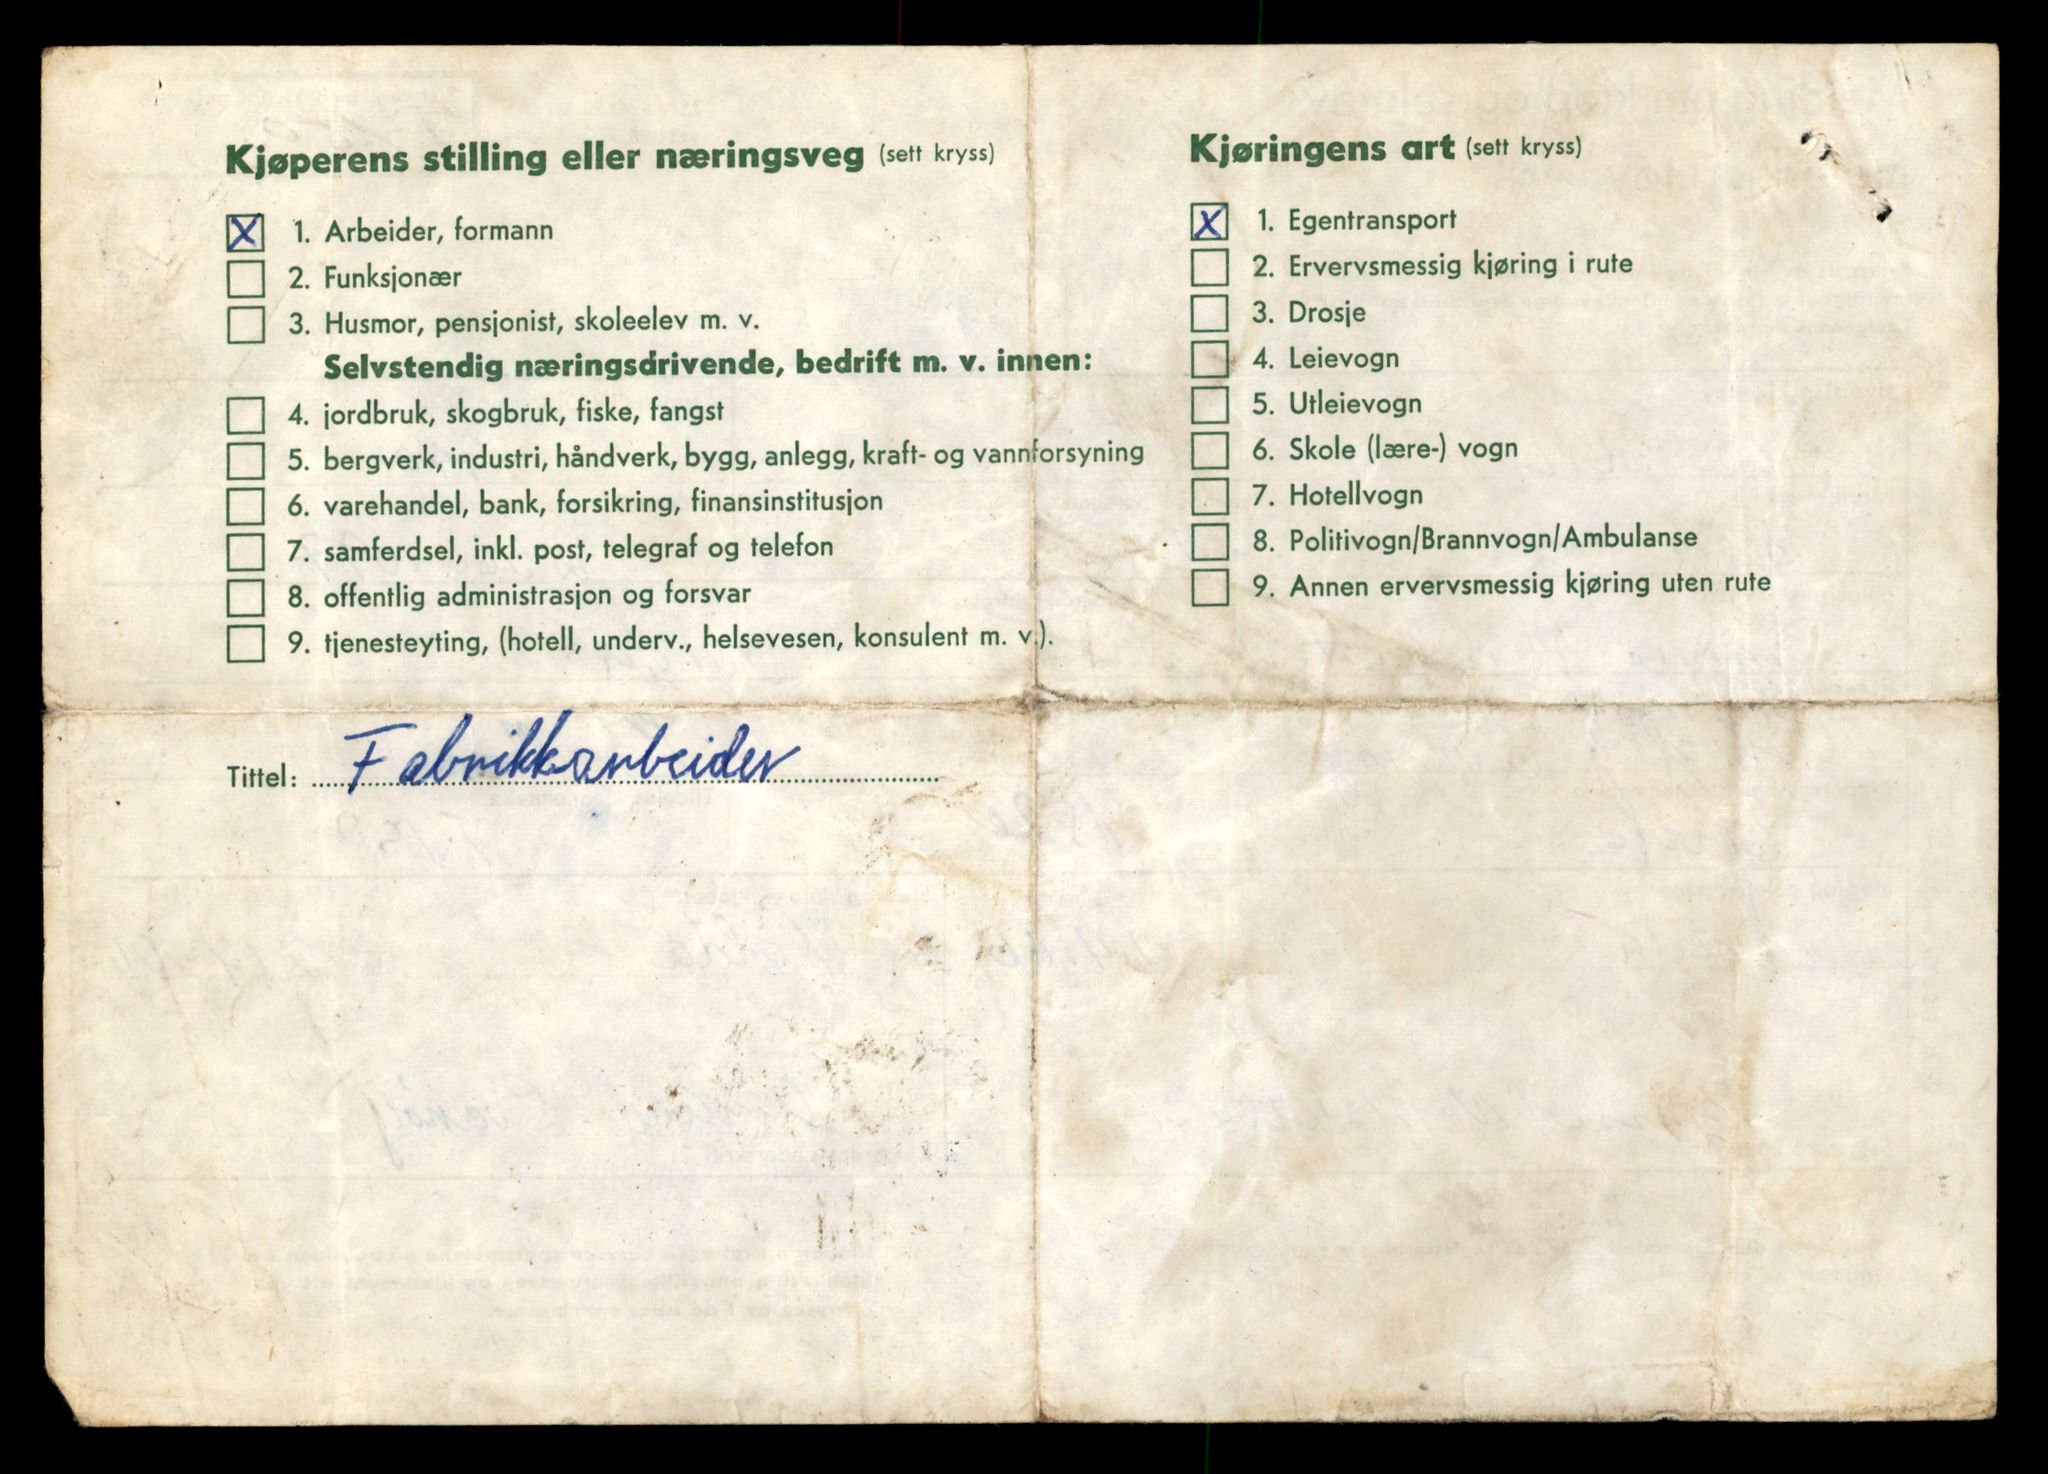 Kjøperens stilling eller næringsveg (sett kryss)
X 1. Arbeider, formann
2. Funksjonær
3. Husmor, pensjonist, skoleelev m. v.
Selvstendig næringsdrivende, bedrift m. v. innen:
4. jordbruk, skogbruk, fiske, fangst
5. bergverk, industri, håndverk, bygg, anlegg, kraft- og vannforsyning
6. varehandel, bank, forsikring, finansinstitusjon
7. samferdsel, inkl. post, telegraf og telefon
8. offentlig administrasjon og forsvar
9. tjenesteyting, (hotell, underv., helsevesen, konsulent m. v.).
Tittel: Fabrikkarbeider
Kjøringens art (sett kryss)
X 1. Egentransport
2. Ervervsmessig kjøring i rute
3. Drosje
4. Leievogn
5. Utleievogn
6. Skole (lære-) vogn
7. Hotellvogn
8. Politivogn/Brannvogn/Ambulanse
9. Annen ervervsmessig kjøring uten rute